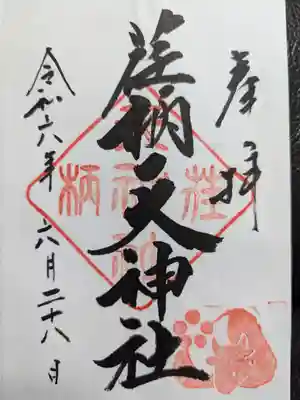 奉拝
荏柄天神社
令和六年六月二十八日
荏
柄
天
神
社